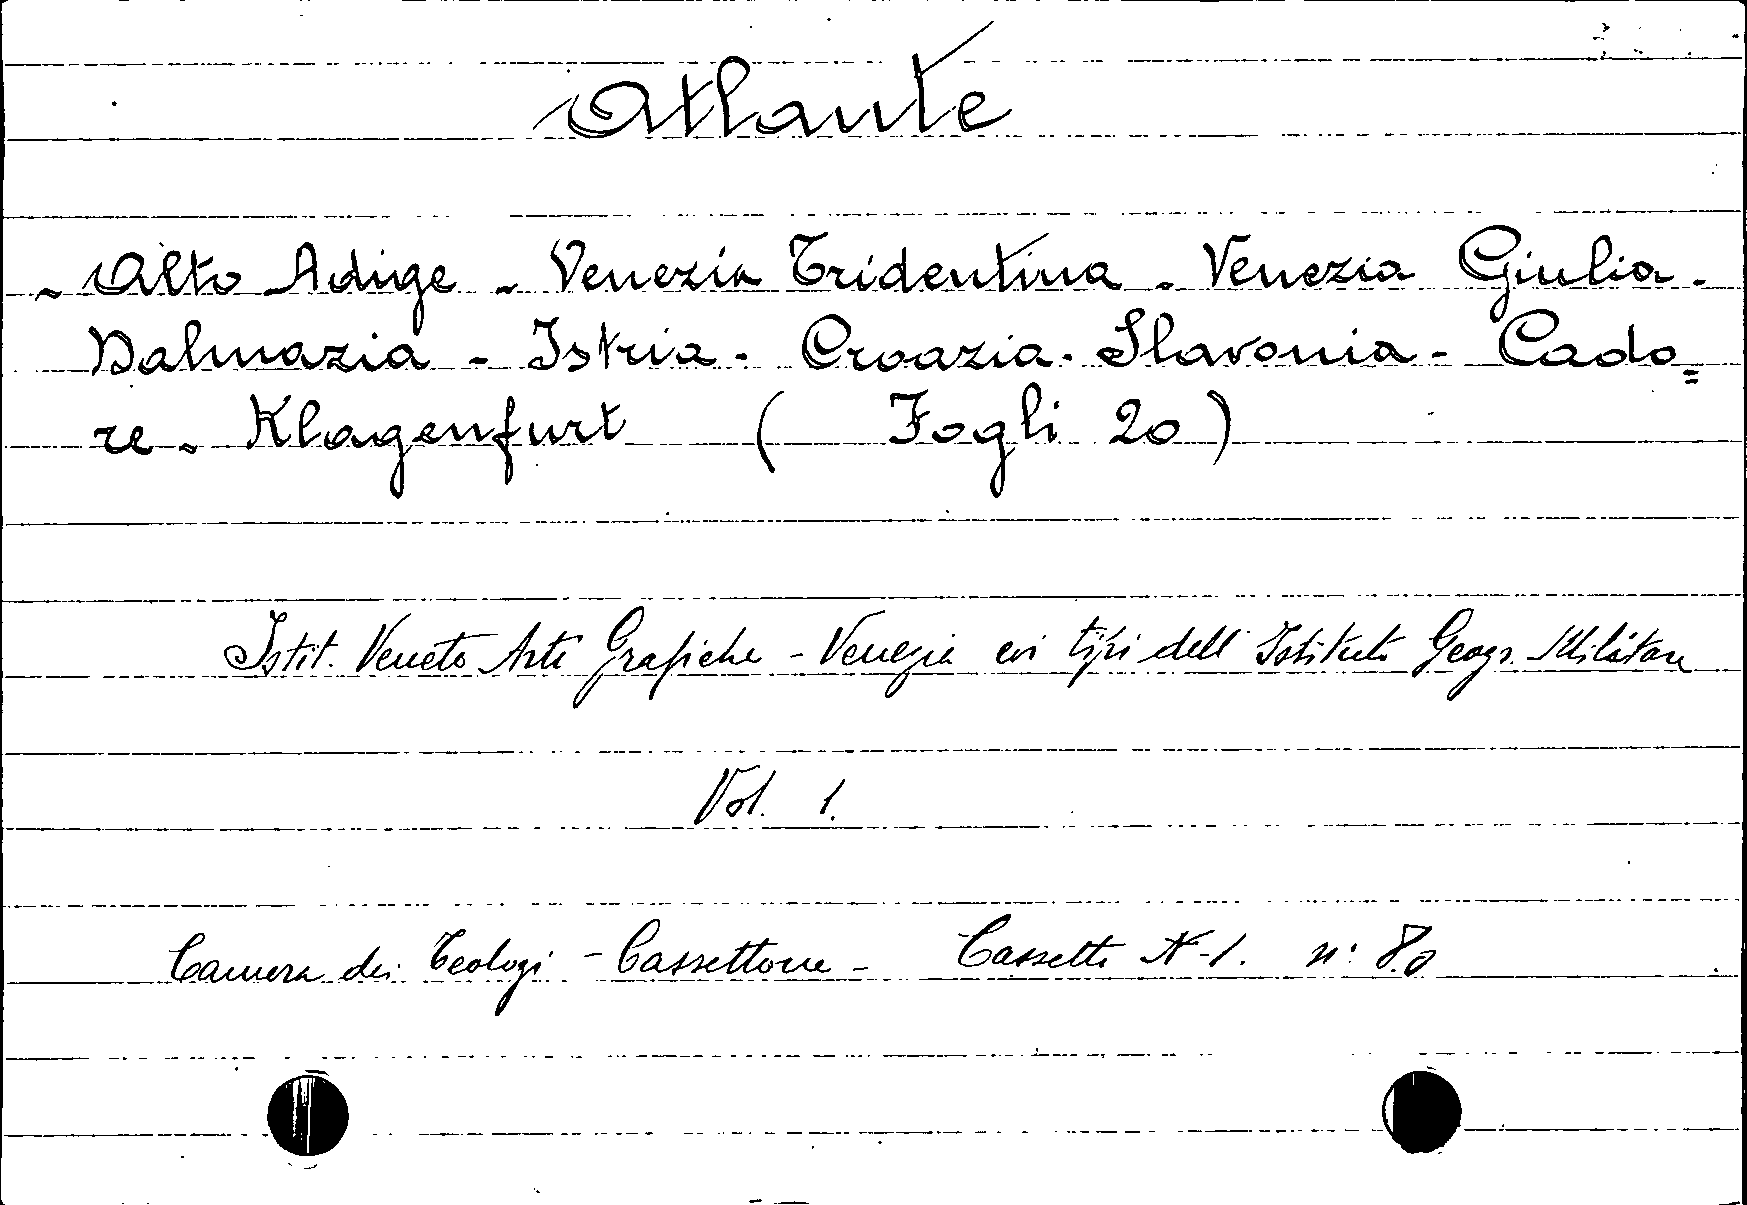 Atlante
- Alto Adige - Venezia Tridentina - Venezia Giulia -
Dalmazia - Istria - Croazia - Slavonia - Cado=
re - Klagenfurt ( Fogli 20 )
Istit. Veneto Arti Grafiche - Venezia coi tipi dell' Istituto Geogr. Militare
Vol. 1.
Camera dei Teologi - Cassettone - Cassetto N-1. n: 80